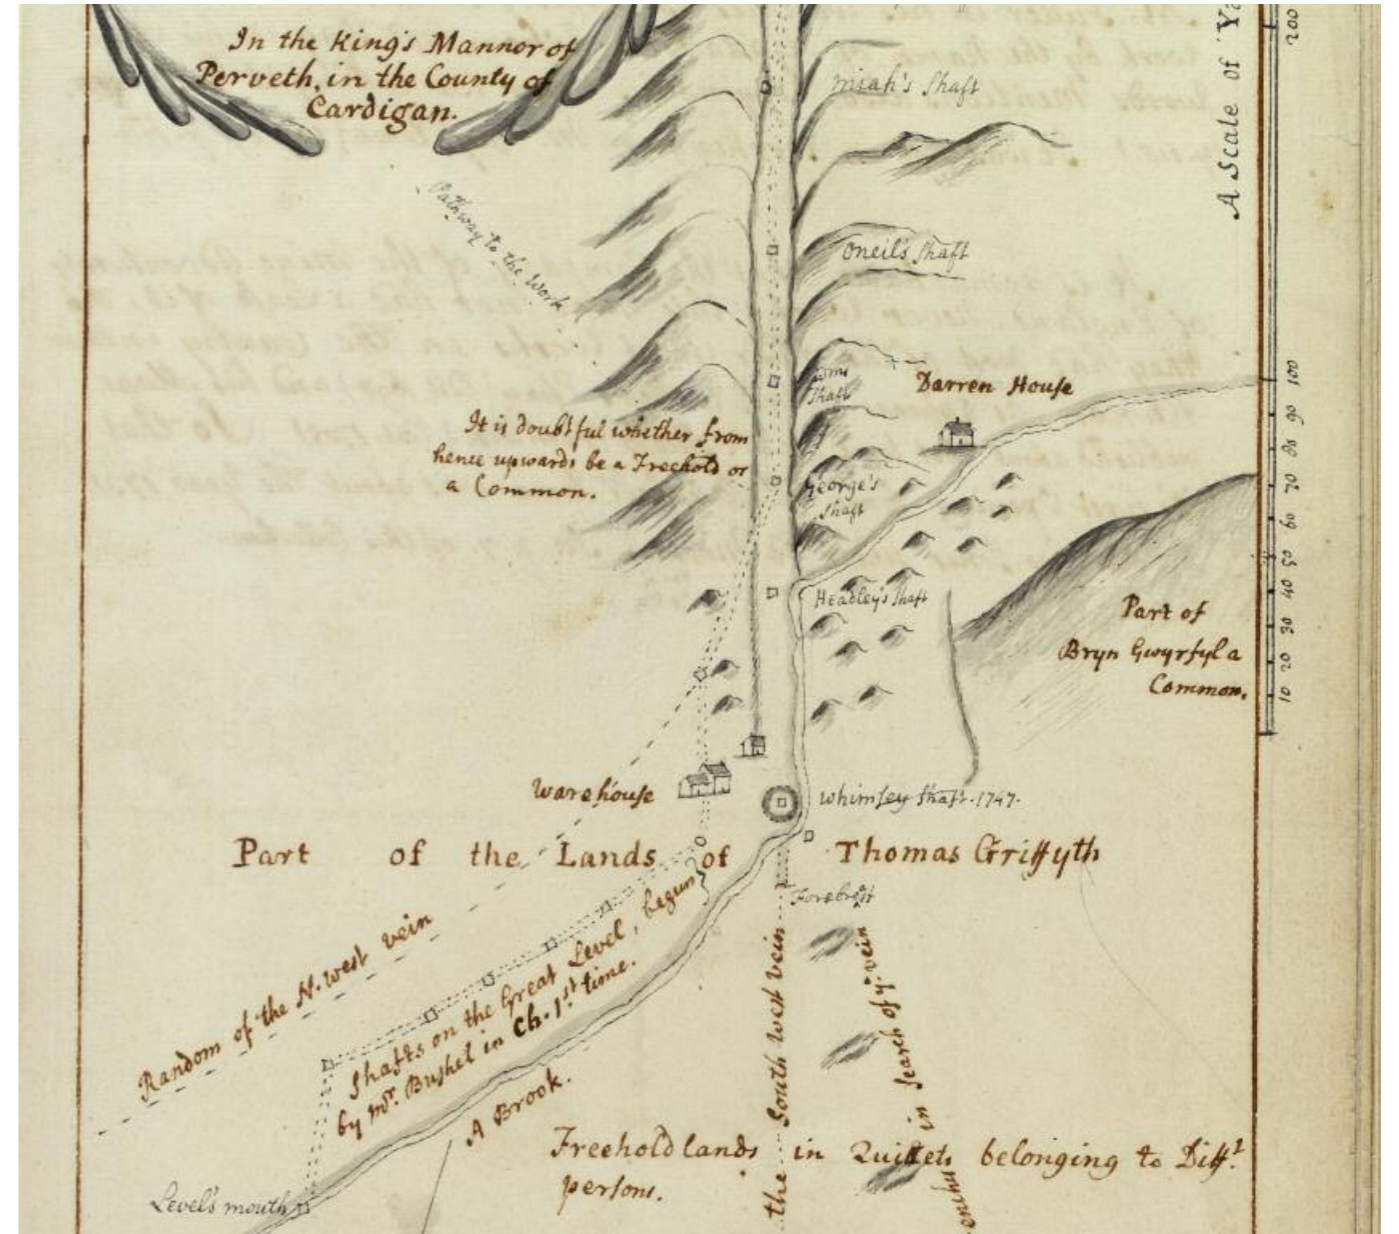 In the King's Mannor of
Perveth, in the County of
Cardigan.
A Scale of
200
miah's Shaft
Pathway to the Work
Oneil's Shaft
100
90
80
70
60
50
40
30
20
10
Shaft
Darren House
It is doubtful whether from
hence upwards be a Freehold or
a Common.
George's
Shaft
Headley's Shaft
Part of
Bryn Gwyrfyl a
Common.
Warehouse
Whimsey Shaft. 1747.
Part of the Lands of Thomas Griffyth
Forebrest
Random of the N. west vein
Shafts on the Great Level, begun
by Mr. Bushel in Ch. 1st time.
A Brook.
the South west vein
in search of ye. vein
Freehold lands in Quillets belonging to Difft.
persons.
Level's mouth